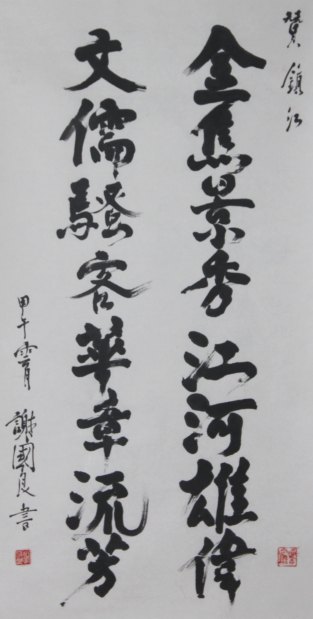 贊鎮江
金焦景秀江河雄偉
文儒騷客華章流芳
甲午 謝國良書